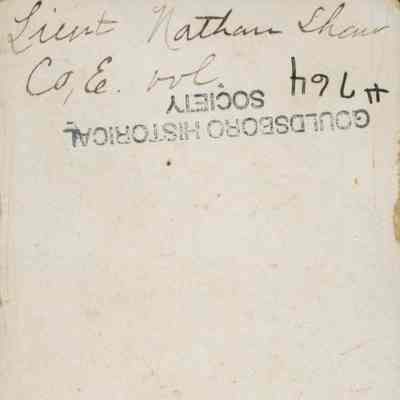 Lieut Nathan Shaw
Co, E. vol
#764
GOULDSBORO HISTORICAL
SOCIETY